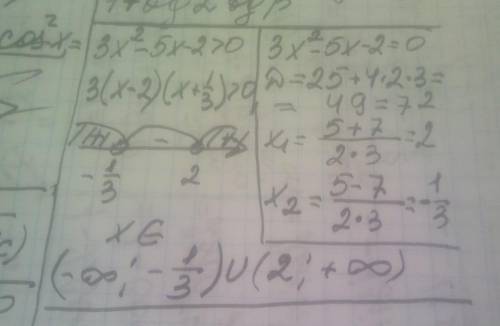 cos²x=
3x²-5x-2>0
3(x-2)(x+1/3)>0
+ - +
-1/3 2
x∈
(-∞; -1/3)∪(2; +∞)
3x²-5x-2=0
D=25+4·2·3=
= 49=7²
x₁=(5+7)/(2·3)=2
x₂=(5-7)/(2·3)=-1/3